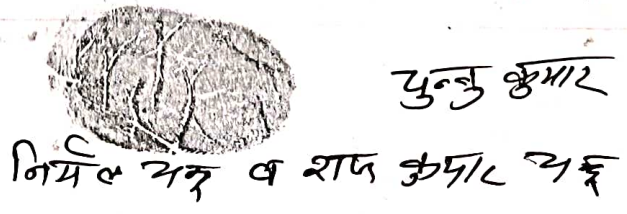 चुन्नु कुमार
निर्मल व राज कुमार